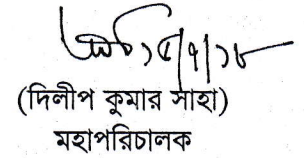 ১৫/৭/১৮
(দিলীপ কুমার সাহা)
মহাপরিচালক